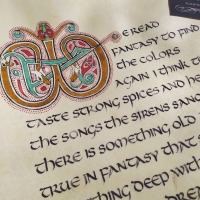 WE READ
FANTASY TO FIND
THE COLORS
AGAIN I THINK T
TASTE STRONG SPICES AND HE
THE SONGS THE SIRENS SANG
THERE IS SOMETHING OLD
TRUE IN FANTASY THAT S
THING DEEP WITH